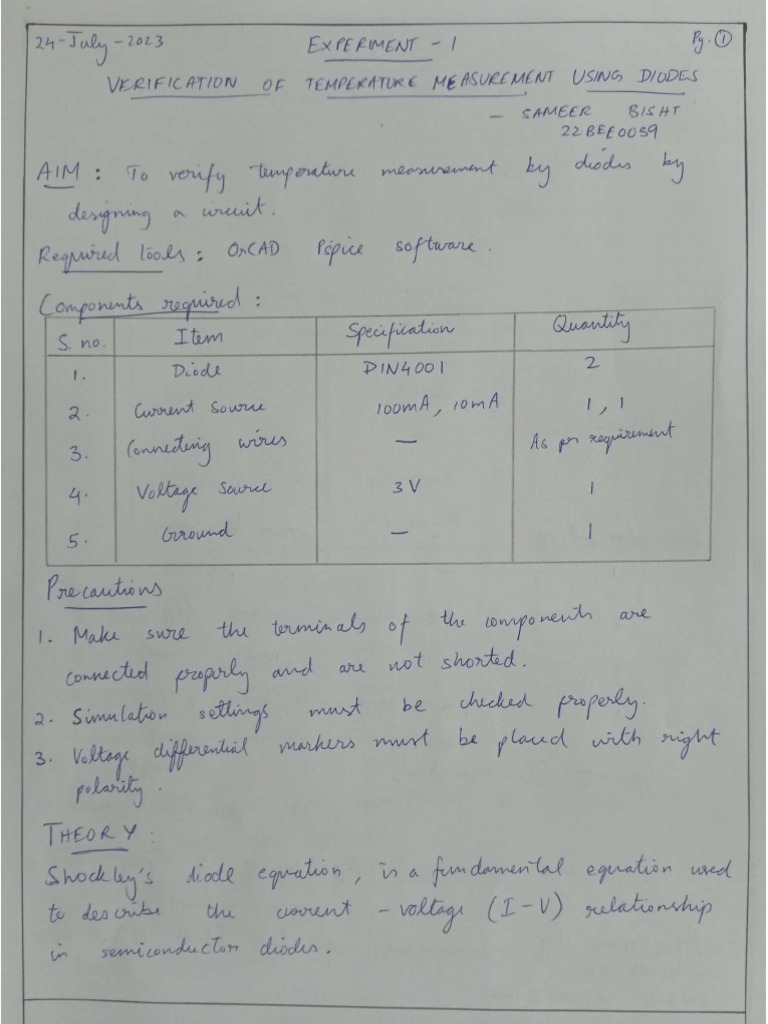 24-July-2023 EXPERIMENT - 1 Pg. ①
VERIFICATION OF TEMPERATURE MEASUREMENT USING DIODES
- SAMEER BISHT
22BEE0059
AIM : To verify temperature measurement by diodes by
designing a circuit.
Required tools : OrCAD Pspice software.
Components required :
S. no. Item Specification Quantity
1. Diode D1N4001 2
2. Current Source 100mA, 10mA 1, 1
3. Connecting wires — As per requirement
4. Voltage Source 3V 1
5. Ground — 1
Precautions
1. Make sure the terminals of the components are
connected properly and are not shorted.
2. Simulation settings must be checked properly.
3. Voltage differential markers must be placed with right
polarity.
THEORY :
Shockley's diode equation, is a fundamental equation used
to describe the current - voltage (I-V) relationship
in semiconductor diodes.